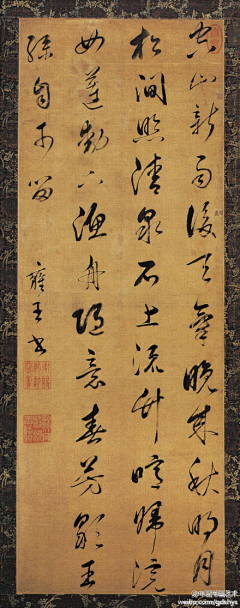 空山新雨後天氣晚來秋明月
松澗照清泉石上流竹喧歸浣
女蓮動下漁舟隨意春芳歇王
孫自可留
雍王書
weibo.com/gdshys